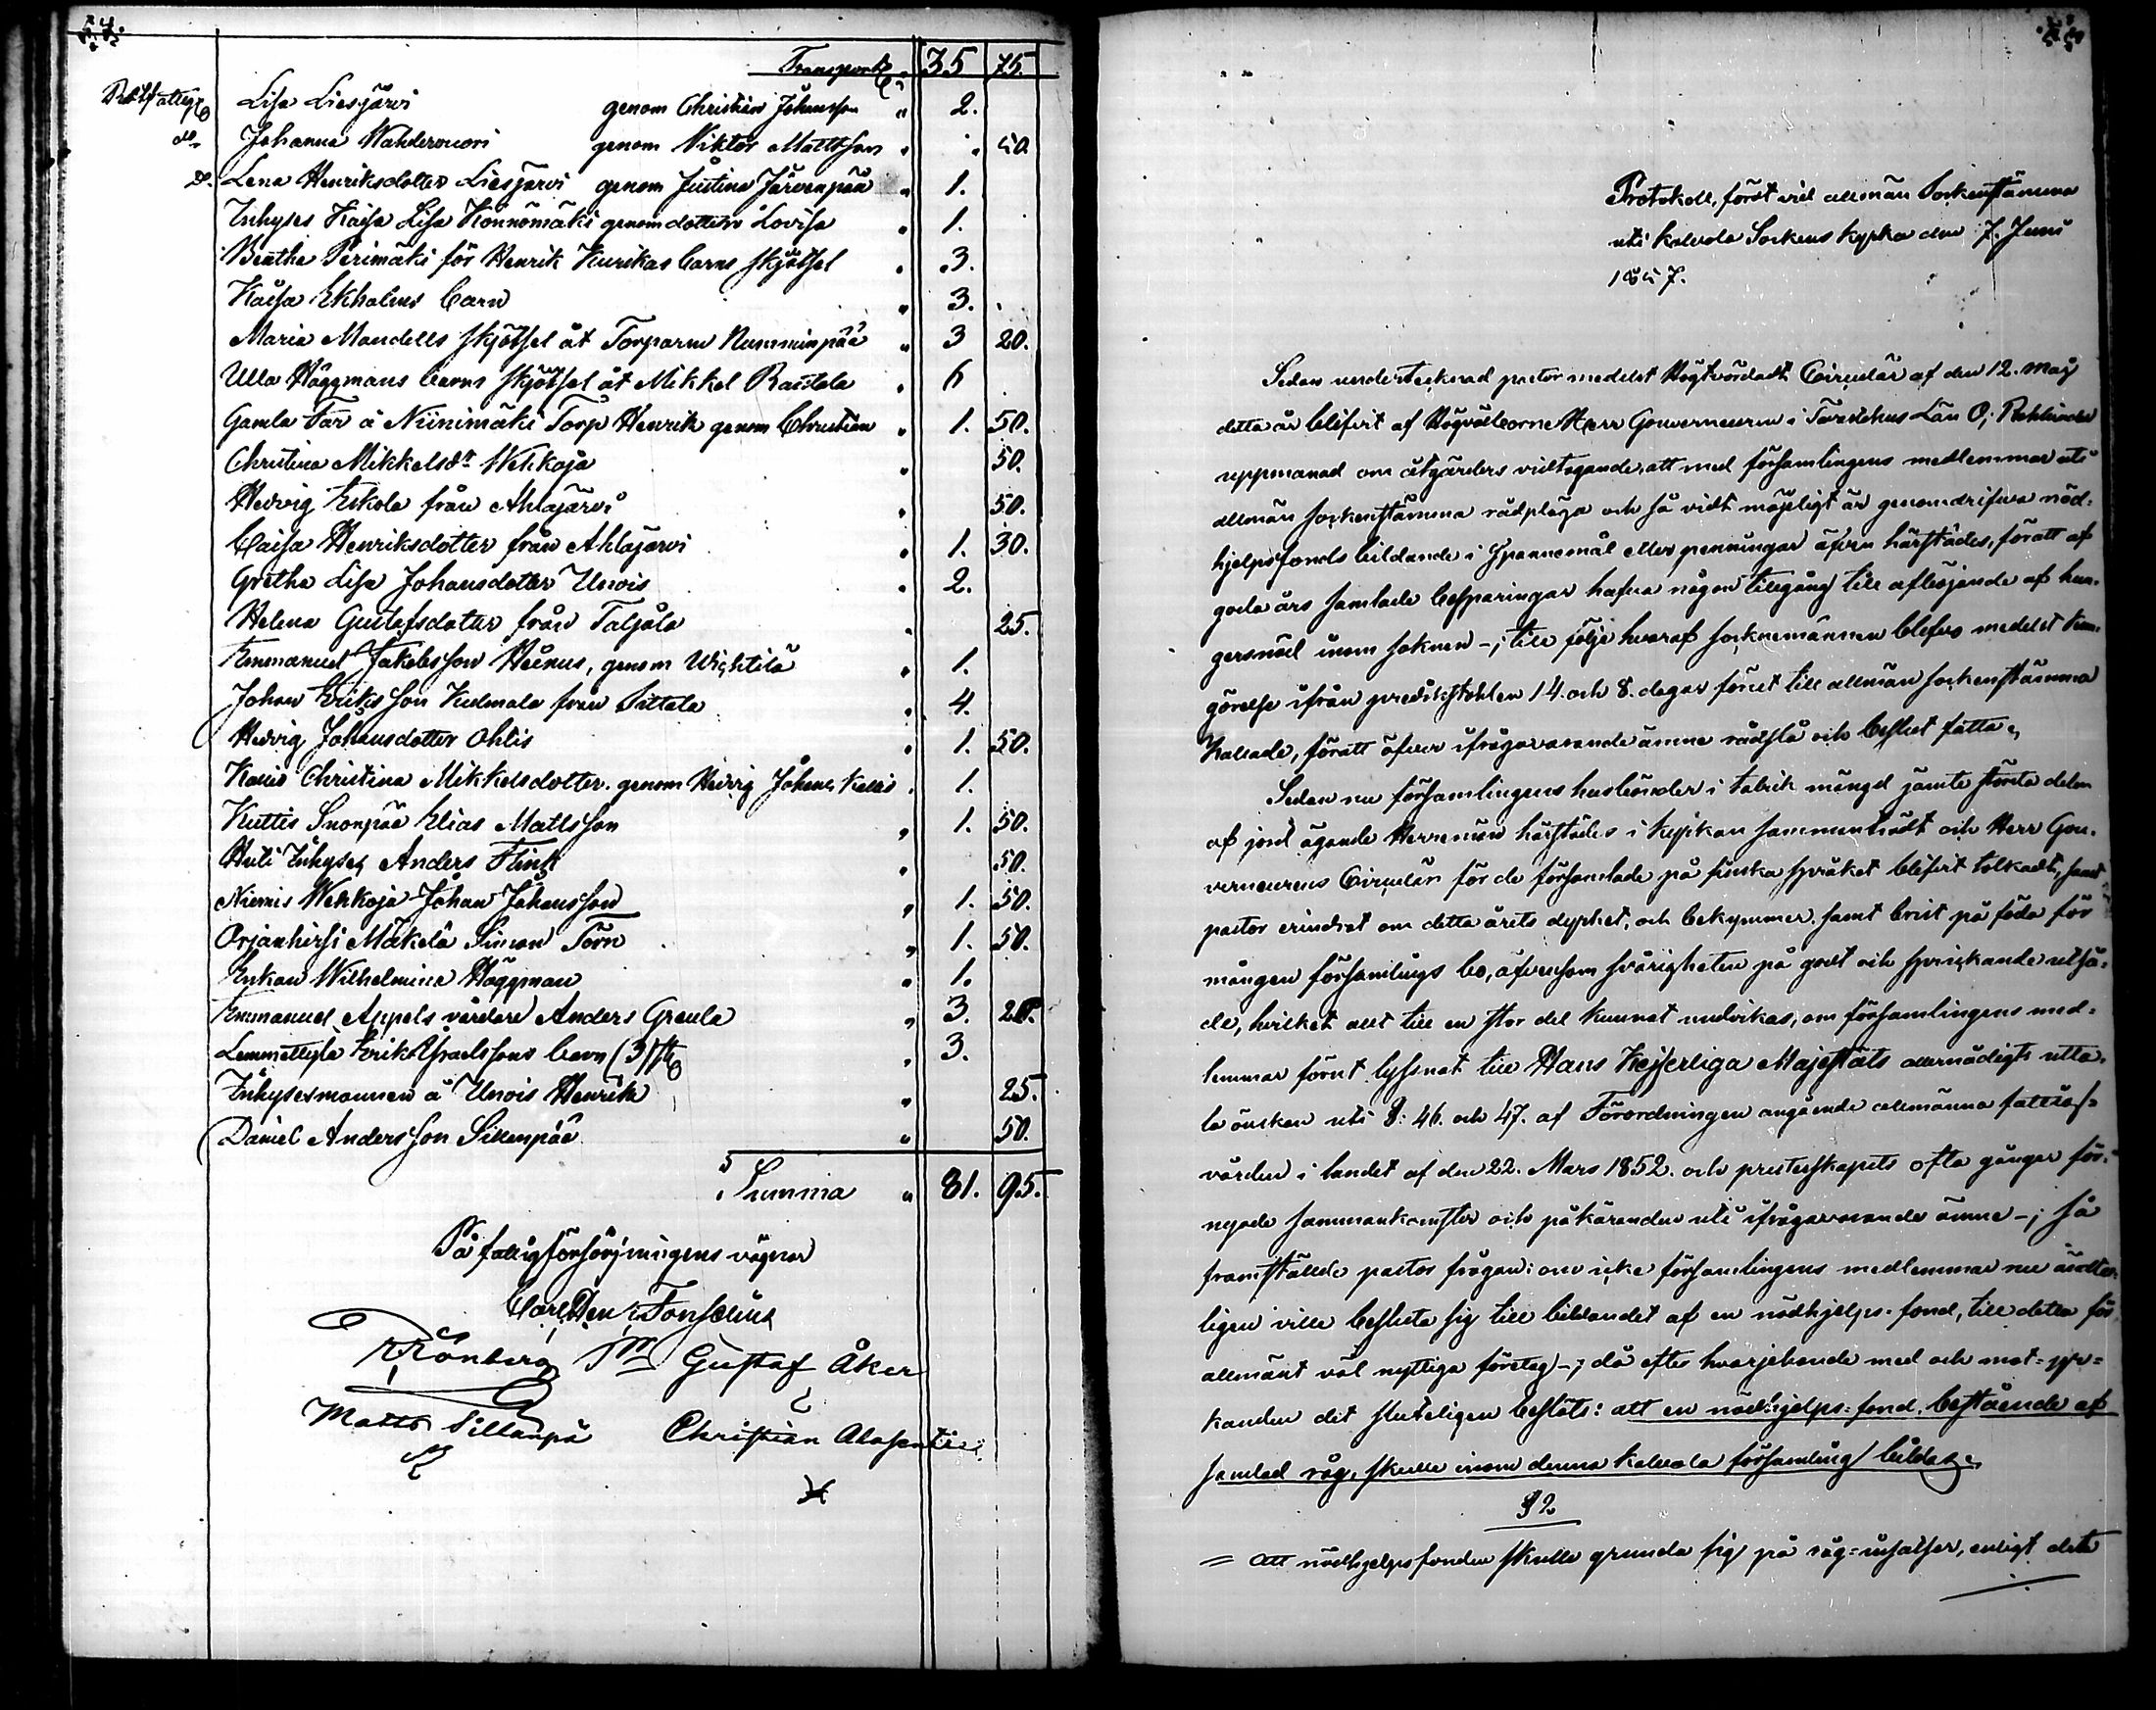 54.
Transport " 35 75.
Rotfattige Lisa Liesjärvi genom Christian Johansson " 2.
do Johanna Wahdervuori genom Viktor Mattsson " " 50.
Do. Lena Henriksdotter Liesjärvi genom Justina Järvenpää " 1.
Inhyses Kaisa Lisa Könnömäki genom dottern Lovisa " 1.
Beatha Perimäki för Henrik Kurikas barns skjötsel " 3.
Kaisa Ekholms barn " 3.
Maria Mandells skjötsel åt Torparen Numminpää " 3 20.
Ulla Häggmans barns skjötsel åt Mikkel Rastela " 6
Gamla Far å Niinimäki Torp Henrik genom Christian " 1. 50.
Christina Mikkelsdr Wehkoja " 50.
Hedvig Eskola från Ahlajärvi " 50.
Caisa Henriksdotter från Ahlajärvi " 1. 30.
Gretha Lisa Johansdotter Unois " 2.
Helena Gustafsdotter från Taljala " 25.
Emmanuel Jakobsson Heinus, genom Wichtilä " 1.
Johan Eriksson Kudmala från Sittala " 4.
Hedvig Johansdotter Ohlis " 1. 50.
Kauis Christina Mikkelsdotter genom Hedvig Johans Kallis " 1.
Kuttis Snonpää Elias Mattsson " 1. 50.
Huti Inhyses Anders Flink " 50.
Niemis Wehkoja Johan Johansson " 1. 50.
Orjanhirsi Mäkelä Simon Törn " 1. 50.
Enkan Wilhelmina Häggman " 1.
Emmanuel Appels vårdare Anders Greula " 3. 20.
Lemmettylä Erik Israelssons barn (3) st " 3.
Inhysesmannen å Unois Henrik " 25.
Daniel Andersson Sillenpää " 50.
Summa " 81. 95.
På fattigförsörjningens vägnar
Carl Hen: Fonselius
R Rönberg Gustaf Åker
Matts Sillanpä Christian Alasentti
55.
Protokoll, fört vid allmän Sockenstämma
uti Kalvola Sockens kyrka den 7. Juni
1857.
Sedan undertecknad pastor medelst Högtvördadt Circulär af den 12. maj
detta år blifvit af Högvälborne Herr Gouverneuren i Tavastehus Län O; Rehbinder
uppmanad om åtgärders vidtagande, att med församlingens medlemmar uti
allmän sockenstämma rådpläga och så vidt möjeligt är genomdrifva nöd-
hjelpsfonds bildande i Spannemål eller penningar äfven härstädes, föratt af
goda års samlade besparingar hafva någon tillgång till afböjande af hun-
gersnöd inom soknen -; till följe hvaraf socknemännen blifvo medelst kun-
görelse ifrån predikstohlen 14. och 8. dagar förut till allmän sockenstämma
kallade, föratt öfver ifrågavarande ämne rådslå och beslut fatta.
Sedan nu församlingens husbönder i talrik mängd jämte största delen
af jord ägande Herremän härstädes i kyrkan sammanträdt och Herr Gou-
verneurens Circulär för de församlade på finska språket blifvit tolkadt, samt
pastor erindrat om detta årets dyrhet, och bekymmer samt brist på föda för
mången församlings bo, äfvensom svårigheten på godt och spirskande utsä-
de, hvilket allt till en stor del kunnat undvikas, om församlingens med-
lemmar förut lyssnat till Hans Kejserliga Majestäts allernådigst utta-
la önskan uti §: 46. och 47. af Förordningen angående allmänna fattigs-
vården i landet af den 22. Mars 1852. och presterskapets ofta gånger för-
nyade sammankomster och påkäranden uti ifrågavarande ämne -; så
framställde pastor frågan: om icke församlingens medlemmar nu ändte-
ligen ville besluta sig till bildandet af en nödhjelps-fond, till detta för
allmänt väl nyttiga företag -; då efter hvarjehanda med och mot-yr-
kanden det sluteligen beslöts: att en nödhjelps-fond, bestående af
samlad råg, skulle inom denna Kalvola församling bildas.
§ 2
= att nödhjelpsfonden skulle grunda sig på råg-insatser, enligt detta